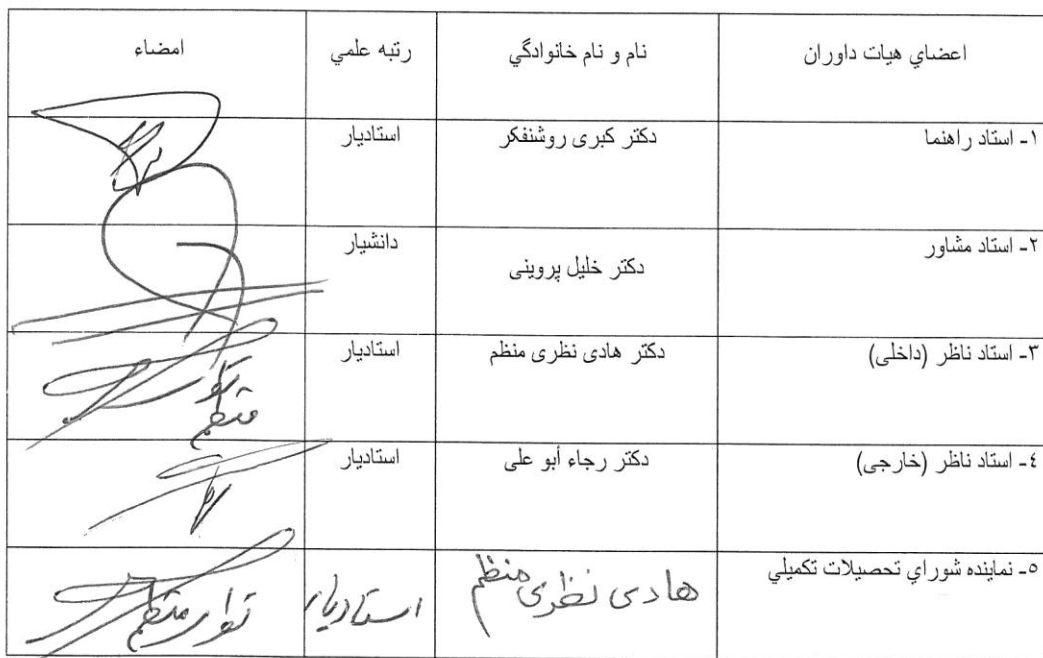 اعضاي هيات داوران	نام و نام خانوادگي	رتبه علمي	امضاء
١- استاد راهنما	دکتر کبری روشنفکر	استاديار
٢- استاد مشاور	دکتر خلیل پروینی	دانشیار
٣- استاد ناظر (داخلی)	دکتر هادی نظری منظم	استادیار	منظم
٤- استاد ناظر (خارجی)	دکتر رجاء أبو علی	استادیار
٥- نماینده شوراي تحصیلات تکمیلي	هادی نظری منظم	استادیار	منظم